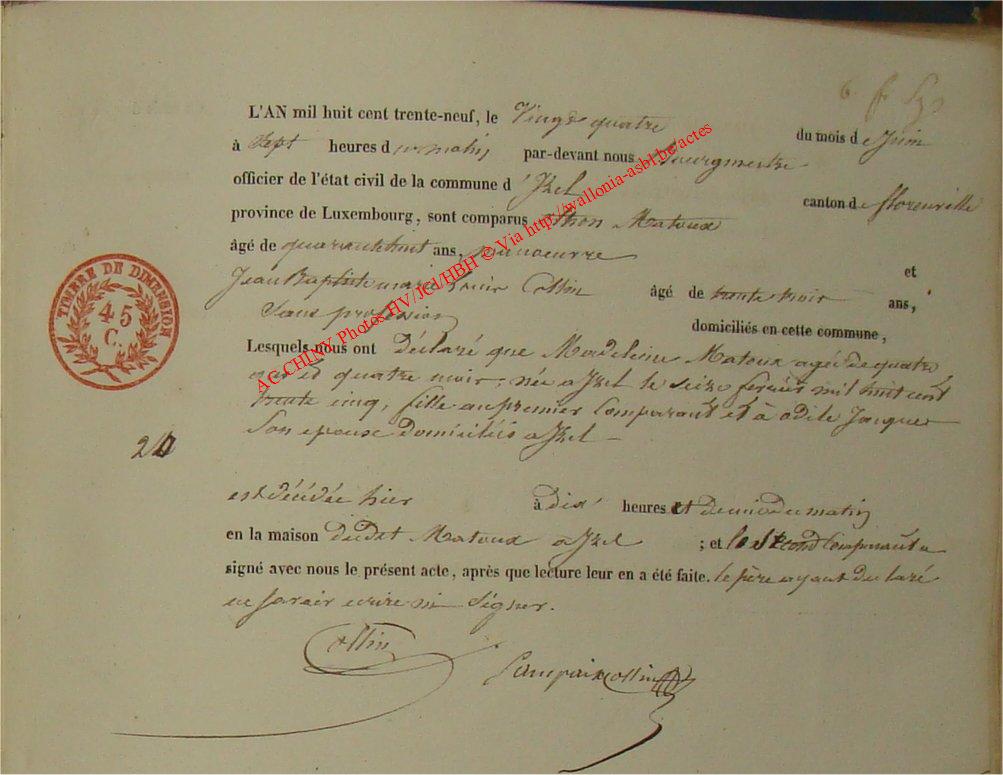 L'AN mil huit cent trente-neuf, le Vingt quatre du mois de Juin
à Sept heures du matin, par-devant nous Bourgmestre
officier de l'état civil de la commune d'Izel canton de florenville
province de Luxembourg, sont comparus Matoux
âgé de quarante huit ans, manoeuvre et
Jean Baptiste marie Louis Collin âgé de trente trois ans,
Sans profession domiciliés en cette commune,
Lesquels nous ont déclaré que Madeleine Matoux agée de quatre
ans et quatre mois, née a Izel le seize fevrier mil huit cent
trente cinq, fille au premier Comparant et à odile Jaques
Son epouse domiciliés a Izel
est décédée hier à dix heures et demie du matin
en la maison dudit Matoux a Izel ; et le second Comparant a
signé avec nous le présent acte, après que lecture leur en a été faite. le père ayant declaré
ne savoir ecrire ni signer.
Collin
TIMBRE DE DIMENSION
45
C.
AC CHINY Photos HV/JCl/HBH © Via http://wallonia-asbl.be/actes